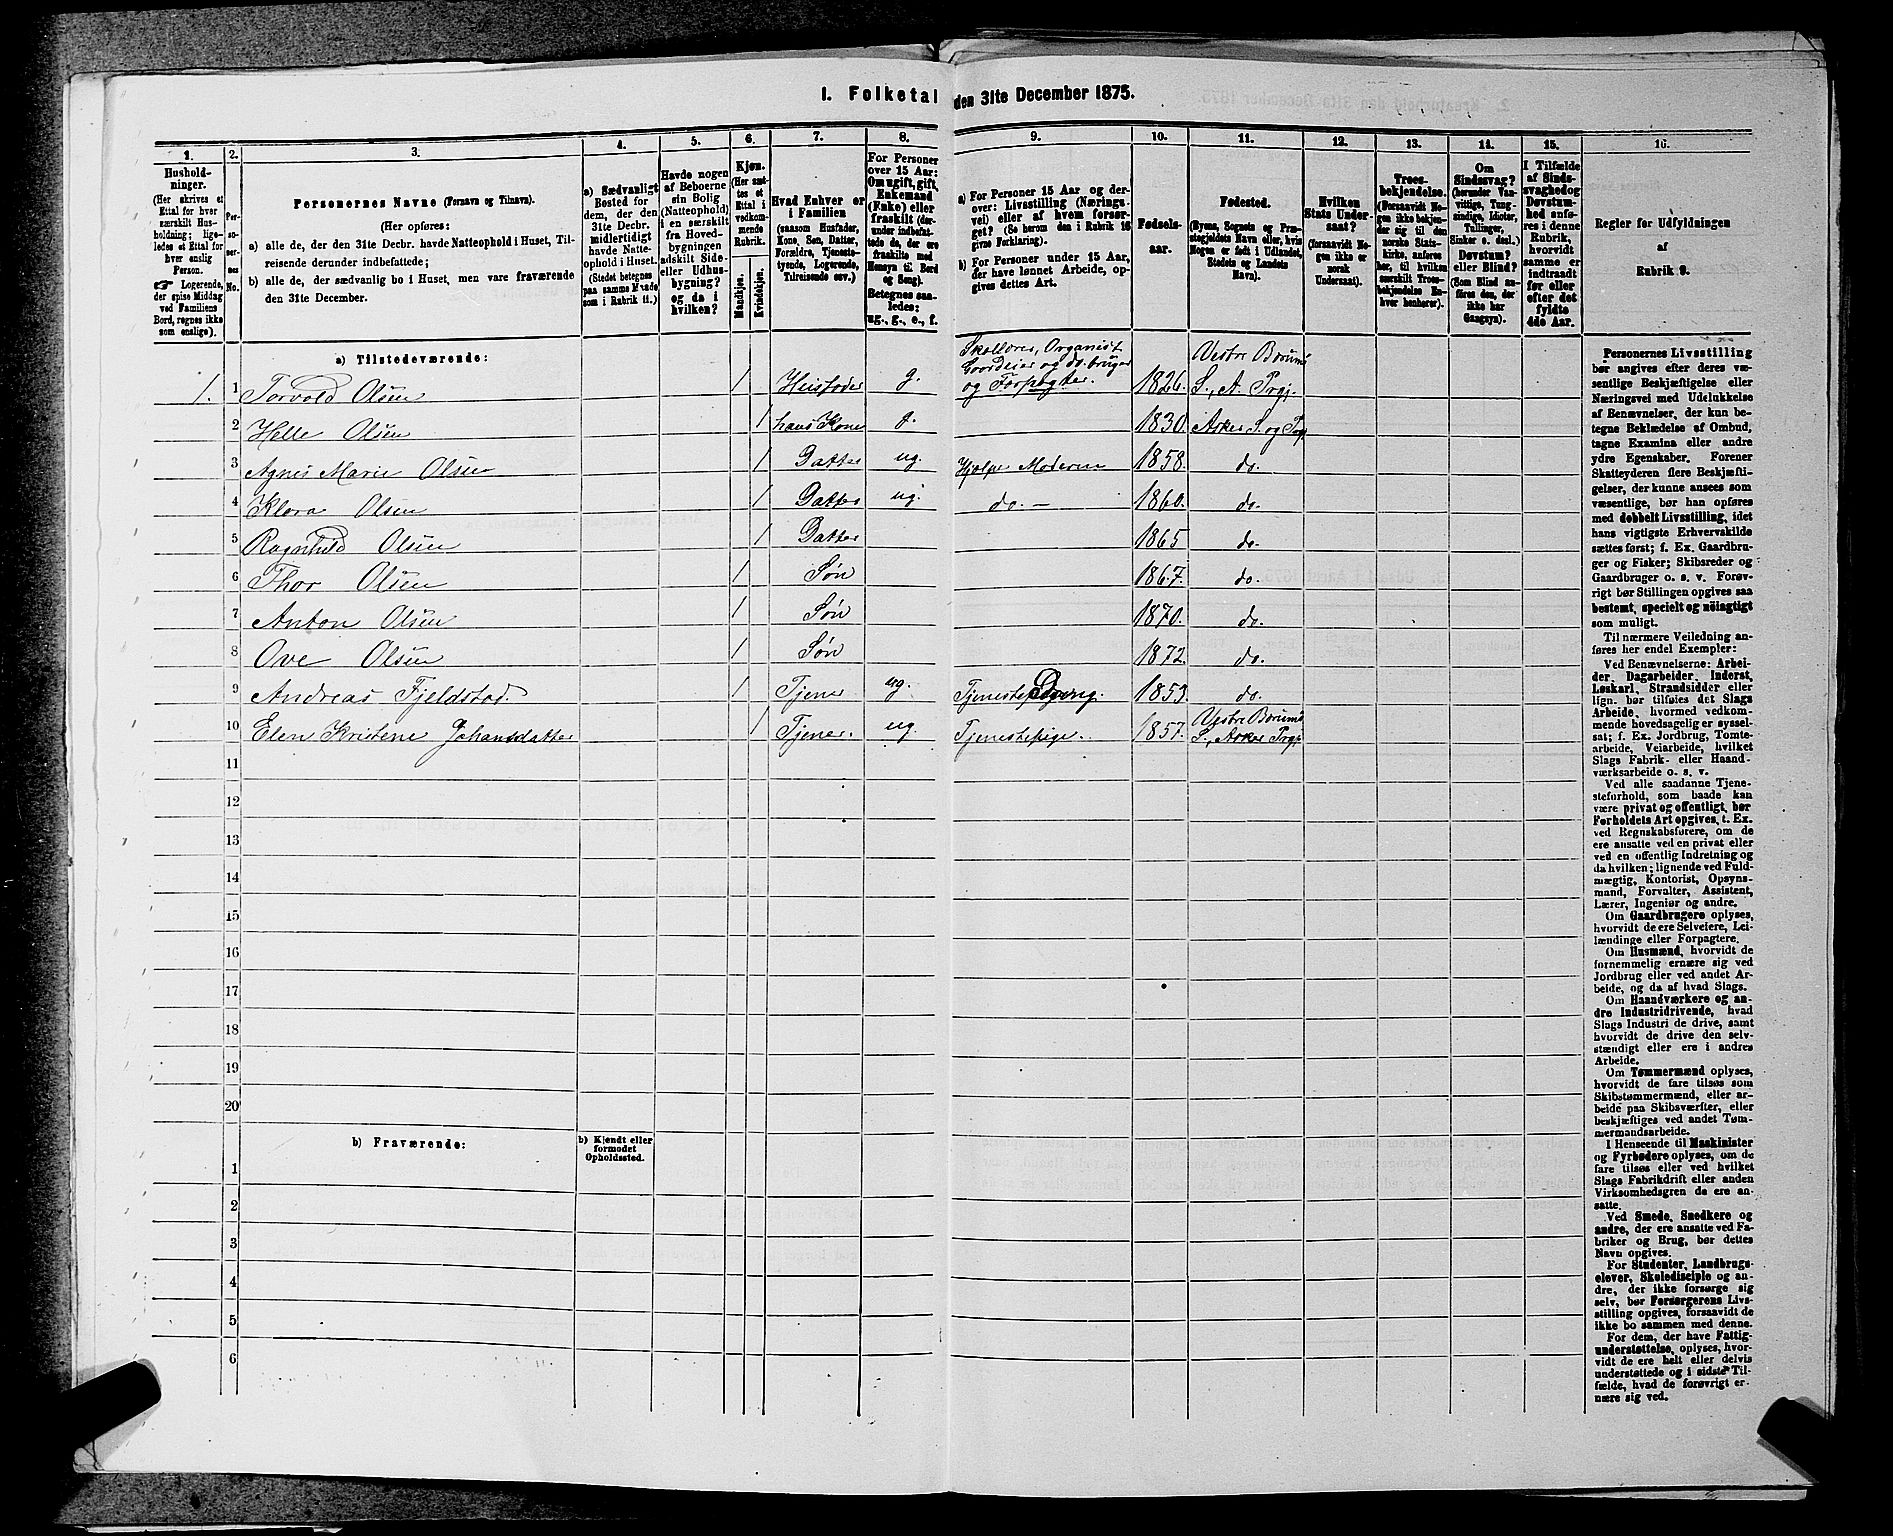 1. Folketal den 31te December 1875.
1.
Hushold-
ninger.
(Her skrives et
Ettal for hver
særskilt Hus-
holdning; lige-
ledes et Ettal for
hver enslig
Person.
☛ Logerende,
der spise Middag
ved Familiens
Bord, regnes ikke
som enslige).
2.
Per-
so-
ner-
nes
No.
3.
Personernes Navne (Fornavn og Tilnavn).
(Her opføres:
a) alle de, der den 31te Decbr. havde Natteophold i Huset, Til-
reisende derunder indbefattede;
b) alle de, der sædvanlig bo i Huset, men vare fraværende
den 31te December.
4.
a) Sædvanligt
Bosted for
dem, der den
31te Decbr.
midlertidigt
havde Natte-
ophold i Huset.
(Stedet betegnes
paa samme Maade
som i Rubrik 11.)
5.
Havde nogen
af Beboerne
sin Bolig
(Natteophold)
i en særskilt
fra Hoved-
bygningen
adskilt Side-
eller Udhus-
bygning?
og da i
hvilken?
6.
Kjøn.
(Her sæt-
tes et
Ettal i
vedkom-
mende
Rubrik.
Mandkjøn.
Kvindekjøn.
7.
Hvad Enhver er
i Familien
(saasom Husfader,
Kone, Søn, Datter,
Forældre, Tjeneste-
tyende, Logerende,
Tilreisende osv.)
8.
For Personer
over 15 Aar:
Om ugift, gift,
Enkemand
(Enke) eller
fraskilt (der-
under indbefat-
tede de, der ere
fraskilte med
Hensyn til Bord
og Seng).
Betegnes saa-
ledes:
ug., g., e., f.
9.
a) For Personer 15 Aar og der-
over: Livsstilling (Nærings-
vei) eller af hvem forsør-
get? (Se herom den i Rubrik 16
givne Forklaring).
b) For Personer under 15 Aar,
der have lønnet Arbeide, op-
gives dettes Art.
10.
Fødsels-
aar.
11.
Fødested.
(Byens, Sognets og Præ-
stegjeldets Navn eller, hvis
Nogen er født i Udlandet,
Stedets og Landets
Navn).
12.
Hvilken
Stats Under-
saat?
(forsaavidt No-
gen ikke er
norsk
Undersaat).
13.
Troes-
bekjendelse.
(Forsaavidt No-
gen ikke bekjen-
der sig til den
norske Stats-
kirke, anføres
her, til hvilken
særskilt Troes-
bekjendelse En-
hver henhører).
14.
Om
Sindssvag?
(herunder Van-
vittige, Tung-
sindige, Idioter,
Tullinger,
Sinker o. desl.)
Døvstum?
eller Blind?
(Som Blind an-
føres den, der
ikke har
Gangsyn).
15.
I Tilfælde
af Sinds-
svaghed og
Døvstum-
hed anfø-
res i denne
Rubrik,
hvorvidt
samme er
indtraadt
før eller
efter det
fyldte
4de Aar.
16.
Regler for Udfyldningen
af
Rubrik 9.
a) Tilstedeværende:
1. 1 Torvald Olsen 1 Husfader g. Skollærer, Organist Gaardeier og do. bruger og Forpagter. 1826. Vestre Bærums S., A. Prgj.
2 Helle Olsen 1 hans Kone g. 1830. Asker S. og Prgj.
3 Agnes Marie Olsen 1 Datter ug. Hjælper Moderen 1858. do.
4 Klara Olsen 1 Datter ug. do. — 1860. do.
5 Ragnhild Olsen 1 Datter 1865 do.
6 Thor Olsen 1 Søn 1867. do.
7 Anton Olsen 1 Søn 1870. do.
8 Ove Olsen 1 Søn 1872. do.
9 Andreas Fjeldstad. 1 Tjener ug. Tjenestedreng. 1853. do.
10 Elen Kristene Johansdatter 1 Tjener. ug. Tjenestepige. 1857. Vestre Bærums S., Asker Prgj.
11
12
13
14
15
16
17
18
19
20
b) Fraværende:
b) Kjendt eller
formodet
Opholdssted.
1
2
3
4
5
6
Personernes Livsstilling
bør angives efter deres væ-
sentlige Beskjæftigelse eller
Næringsvei med Udelukkelse
af Benævnelser, der kun be-
tegne Beklædelse af Ombud,
tagne Examina eller andre
ydre Egenskaber. Forener
Skatteyderen flere Beskjæfti-
gelser, der kunne ansees som
væsentlige, bør han opføres
med dobbelt Livsstilling, idet
hans vigtigste Erhvervskilde
sættes først; f. Ex. Gaardbru-
ger og Fisker; Skibsreder og
Gaardbruger o. s. v. Forøv-
rigt bør Stillingen opgives saa
bestemt, specielt og nøiagtigt
som muligt.
Til nærmere Veiledning an-
føres her endel Exempler:
Ved Benævnelserne: Arbei-
der, Dagarbeider, Inderst,
Løskarl, Strandsidder eller
lign. bør tilføies det Slags
Arbeide, hvormed vedkom-
mende hovedsagelig er syssel-
sat; f. Ex. Jordbrug, Tomte-
arbeide, Veiarbeide, hvilket
Slags Fabrik- eller Haand-
værksarbeide o. s. v.
Ved alle saadanne Tjene-
steforhold, som baade kan
være privat og offentligt, bør
Forholdets Art opgives, t. Ex.
ved Regnskabsførere, om de
ere ansatte ved en privat eller
ved en offentlig Indretning og
da hvilken; lignende ved Fuld-
mægtig, Kontorist, Opsyns-
mand, Forvalter, Assistent,
Lærer, Ingeniør og andre.
Om Gaardbrugere oplyses,
hvorvidt de ere Selveiere, Lei-
lændinge eller Forpagtere.
Om Husmænd, hvorvidt de
fornemmelig ernære sig ved
Jordbrug eller ved andet Ar-
beide, og da af hvad Slags.
Om Haandværkere og an-
dre Industridrivende, hvad
Slags Industri de drive, samt
hvorvidt de drive den selv-
stændigt eller ere i andres
Arbeide.
Om Tømmermænd oplyses,
hvorvidt de fare tilsøs som
Skibstømmermænd, eller ar-
beide paa Skibsværfter, eller
beskjæftiges ved andet Tøm-
mermandsarbeide.
I Henseende til Maskinister
og Fyrbødere oplyses, om de
fare tilsøs eller ved hvilket
Slags Fabrikdrift eller anden
Virksomhedsgren de ere an-
satte.
Ved Smede, Snedkere og
andre, der ere ansatte ved Fa-
briker og Brug, bør dettes
Navn opgives.
For Studenter, Landbrugs-
elever, Skoledisciple og an-
dre, der ikke forsørge sig
selv, bør Forsørgerens Livs-
stilling opgives, forsaavidt de
ikke bo sammen med denne.
For dem, der have Fattig-
understøttelse, oplyses, hvor-
vidt de ere helt eller delvis
understøttede og i sidste Til-
fælde, hvad de forøvrigt er-
nære sig ved.